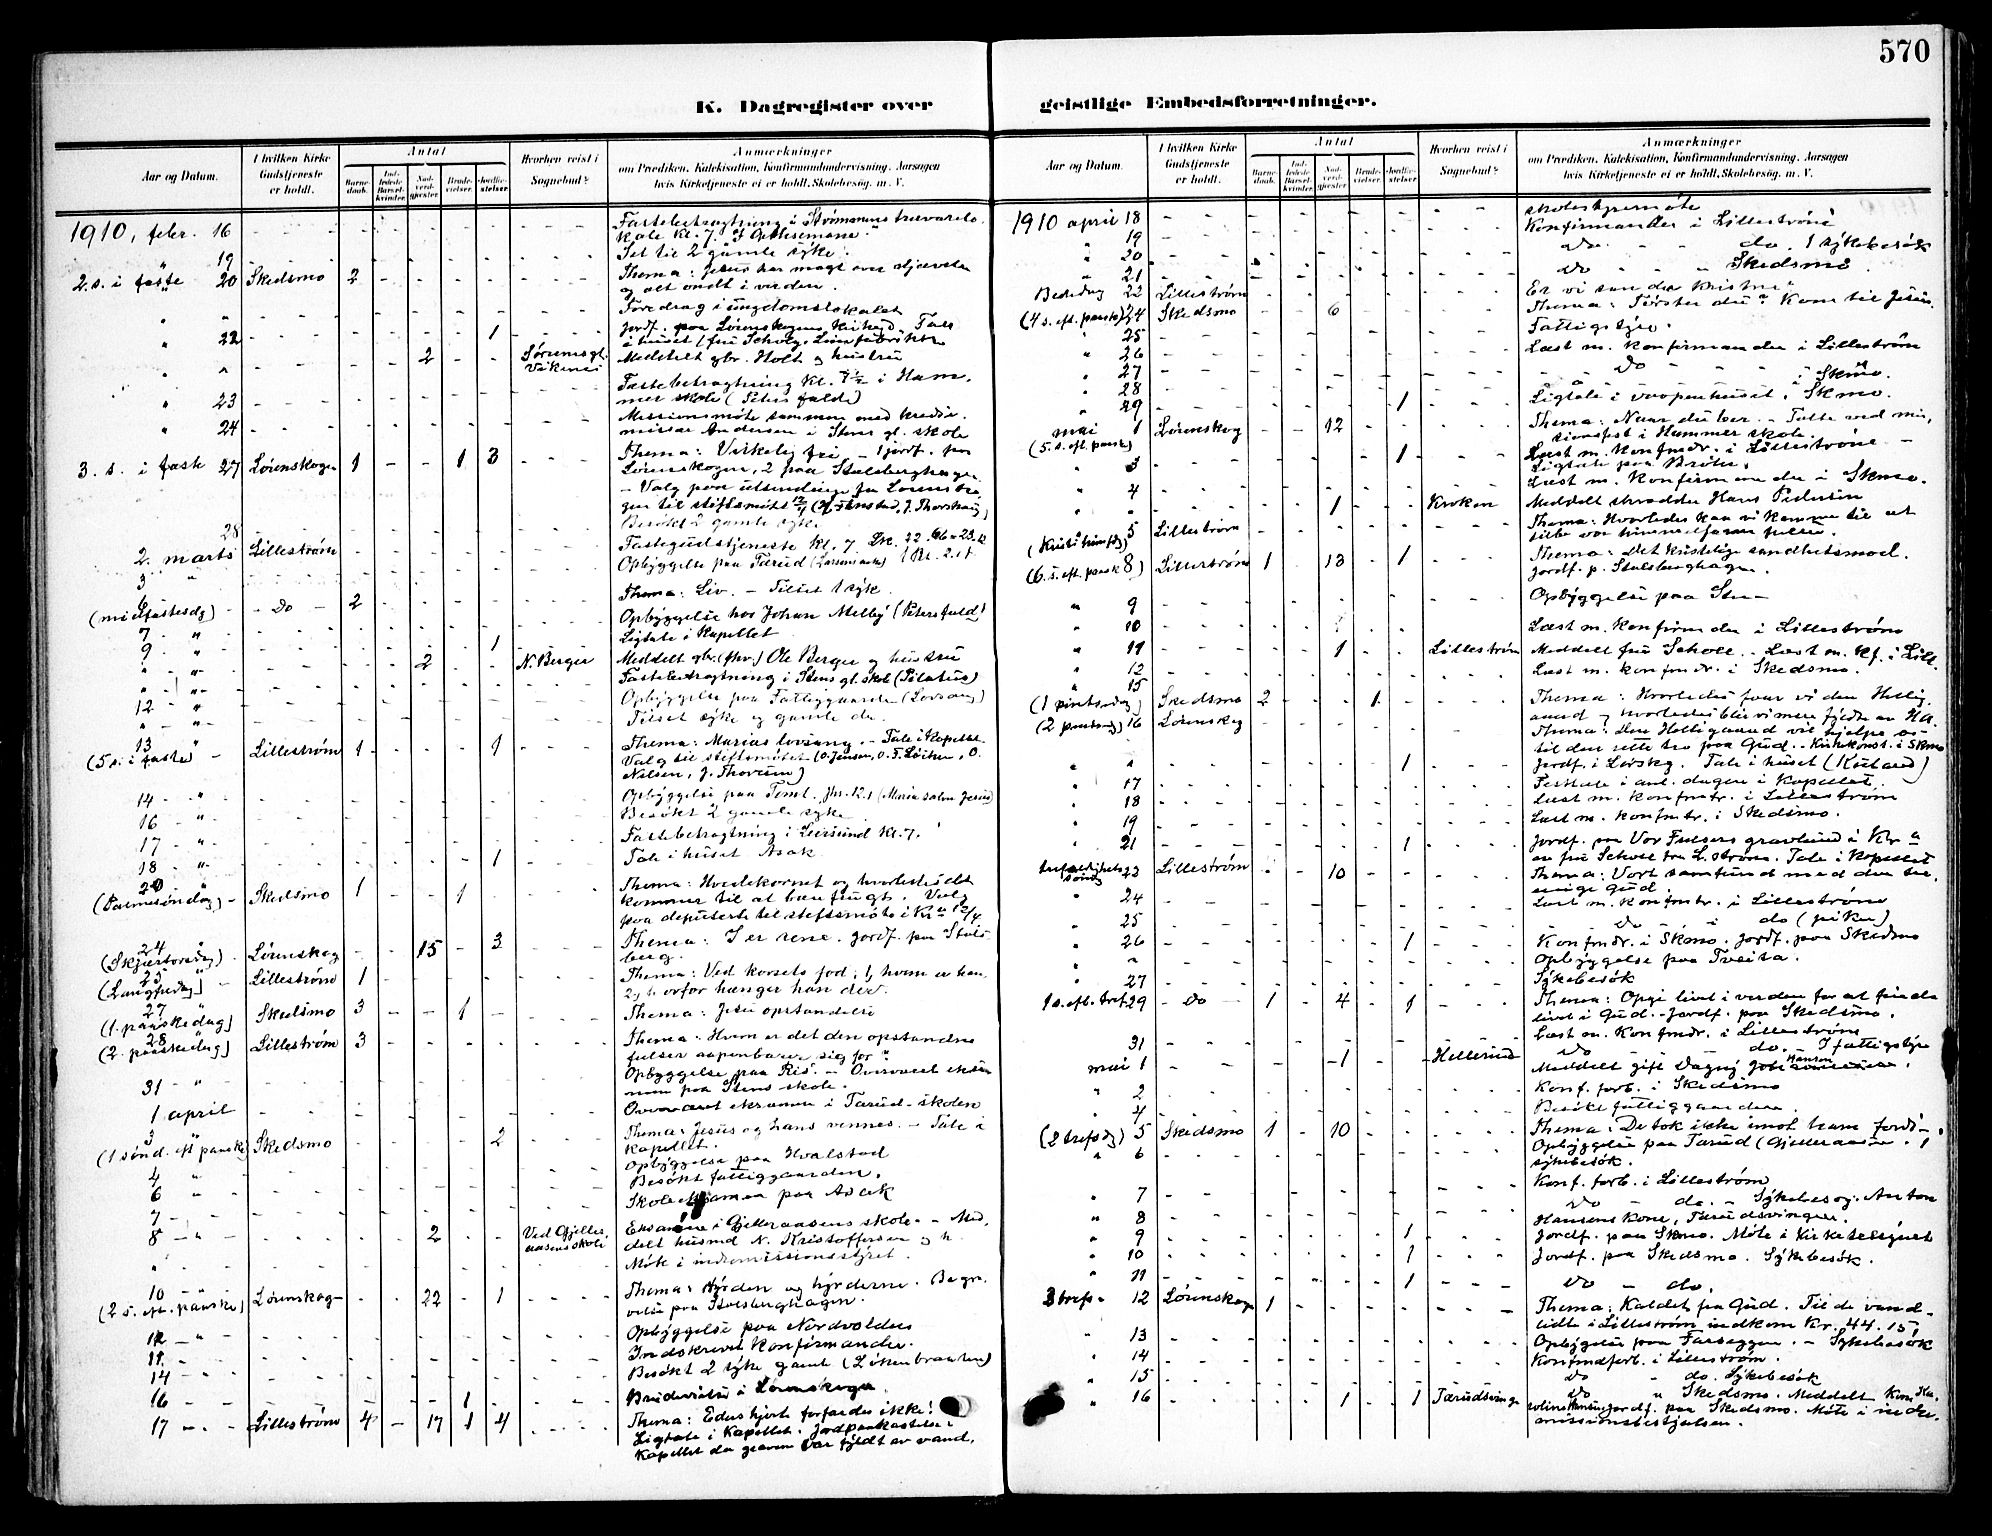 570
K. Dagregister over geistlige Embedsforretninger.
Aar og Datum.
I hvilken Kirke Gudstjeneste er holdt.
Antal
Barnedaab.
Indledede Barselkvinder.
Nadverdgjester
Brudevielser.
Jordfæstelser
Hvorhen reist i Sognebud?
Anmærkninger
om Prædiken, Katekisation, Konfirmandundervisning. Aarsagen
hvis Kirketjeneste ei er holdt. Skolebesøg. m. V.
1910, febr. 16
kale kl. 7. "I Gethsemane"
19 Set til 2 gamle syke.
2. s. i faste 20 Skedsmo 2 Thema: Jesus har magt over djævelen
og alt ondt i verden.
Foredrag i ungdomslokalet
22 1 Jordf. paa Lørenskogens kirkegd. Tale
2 Meddelt gbr. Holt og hustru
Fastebetragtning kl. 7½ i Ham-
23 mer skole (Peters fald)
Missionsmøte sammen med
24 Andersen i Stens gl. skole
3. s. i faste 27 Lørenskogen 1 - - 1 3 Thema: Virkelig fri - 1 jordf. paa
Lørenskogen, 2 paa Stalsberghagen
- Valg paa utsendinge fra Lørensko-
Besøkt 2 gamle syke
28
2. marts Lillestrøm Fastegudstjeneste kl. 7.
3 " Opbyggelse paa Tærud
6 Thema: Liv. - Tilset 1 syk.
(midfastesdg) - Do - 2
7 " Opbyggelse hos Johan Melby (Peters fald)
9 " 1 Ligtale i Kapellet
2 N. Berger Meddelt gbr. (fhv.) Ole Berger og hustru
Fastebetragtning i Stens gl. skol (Pilatus)
12 - " Opbyggelse paa Fattiggaarden (Lovsang)
Tilset syke og gamle der.
13 "
(5 s. i faste) Lillestrøm 1 1 Thema: Marias lovsang. - Tale i Kapellet
Valg til stiftsmøtet (O. Jensen, O. F. Løiten, O.
Nilsen, J. Thorum)
14 - " Opbyggelse paa
16 - " Besøkt 2 gamle syke
17 - " Fastebetragtning i Leirsund kl. 7.
18 - " 1 Tale i huset Asak
20
(Palmesøndag) - Skedsmo 1 1 Thema: Hvedekornet og hvorledes det
kommer til at bære frugt. Valg
paa deputerte til stiftsmøte i Kra 12/4
24
(Skjærtorsdg) - Lørenskog 15 - 3 Thema: I er rene. Jordf. paa Stals-
berg.
25
(Langfredag) - Lillestrøm 1 Thema: Ved korsets fod; 1, hvem er han
2, hvorfor hænger han der.
27
(1. paaskedag) Skedsmo 3 - - 1 Thema: Jesu opstandelse
28
(2. paaskedag) Lillestrøm 3 Thema: Hvem er det den opstandne
frelser aapenbarer sig for?
31 - " Opbyggelse paa Ris. - Overværet eksa-
men paa Stens skole.
1 april Overværet eksamen i Tærud-skolen
3 "
(1 sønd. eft paaske) Skedsmo 2 Thema: Jesus og hans venner. - Tale i
Kapellet.
4 Opbyggelse paa Hvalstad
6 " Besøkt fattiggaarden.
7 - Skoleeksamen paa Asak
8 - " 2 Ved Gjelleraasens skole Eksamen i Gjelleraasens skole. - Med-
delt husmd N. Kristoffersen og h.
Møte i indremissionsstyret.
10 - "
(2 s. eft. paaske) Lørenskog 22 - 1 Thema: Hyrden og hyrderne. Begra-
velse paa Stalsberghagen.
12 - " Opbyggelse paa Nordvoldens
11 - Indskrevet Konfirmander.
14 - Besøkt 2 syke gamle (Løkenbraaten)
16 - 1 Brudevielse i Lørenskogen.
17 - " - Lillestrøm 4 - 17 1 4 Thema: Eders hjerte forfærdes ikke!
Ligtale i Kapellet. Jordpaakastelse i
Kapellet da graven var fyldt av vand.
1910 april 18 skolestyremøte
19 Konfirmander i Lillestrøm
20 do - do. 1 sykebesøk
21 do - Skedsmo.
Bededag 22 Lillestrøm Er vi sande kristne?
(4 s. eft. paaske) 24 Skedsmo 6 Thema: Tørster du? Kom til Jesus.
25 Fattigstyre.
26 Læst m. Konfirmander i Lillestrøm
27 do - Skmo.
28
29 1 Ligtale i vaapenhuset, Skmo.
mai 1
(5. s. eft. paask) Lørenskog 12 Thema: Naar du ber. - Talte ved mis-
sionsfest i Hammer skole.
3 1 Læst m. Konfmdr. i Lillestrøm -
Ligtale paa Bråte.
4 Læst m. Konfirmander i Skmo.
1 Kroken Meddelt skrædder Hans Pedersen
(Kristi himfdg) 5 Lillestrøm Thema: Hvorledes kan vi komme til at
(6. s. eft. paask) 8 Lillestrøm 1 - 13 - 1 Thema: Det kristelige sandhetsmod.
Jordf. p. Stalsberghagen.
9 Opbyggelse paa Sten
10 Læst m. Konfirmander i Lillestrøm
11 1 Lillestrøm Meddelt fru Scholl. - Læst m. Kf. i Lill.
12 Læst m. konfmdr. i Skedsmo.
15
(1 pintsedag) Skedsmo 2 1 Thema: Hvorledes faar vi den Hellig
aand og hvorledes blir vi mere fyldte av HA.
(2 pintsedg) 16 Lørenskog Thema: Den Helligaand vil hjelpe os
til den rette tro paa Gud. - Kirkekonst. i Skmo
1 Jordf. i Lørskg. Tale i huset
17 Festtale i anl. dagen i Kapellet.
18 Læst m. Konfmdr. i Lillestrøm
19 Læst m. konfmdr. i Skedsmo.
21 1 Jordf. paa Vor Frelsers gravlund i Kra
av fru Scholl fra L.strøm. Tale i Kapellet
trefoldighets søndg 23 Lillestrøm 10 Thema: Vort samfund med den tre-
enige Gud.
24 Læst m. konfmdr. i Lillestrøm
25 do i do (piker)
26 1 Konfmdr. i Skmo. Jordf. paa Skedsmo
Opbyggelse paa Tveita.
27 Sykebesøk
1 s. eft. tref. 29 - Do - 1 - 4 - 1 Thema: Opgi livet i verden for at finde
livet i Gud. - Jordf. paa Skedsmo.
Læst m. Konfmdr. i Lillestrøm
31 do - do. - 1 fattigstyre
mai 1 1 Hellerud Meddelt gift Dagny Hansen
2 Konf. forb. i Skedsmo
4 Besøkt fattiggaarden.
(2 trefsdg) 5 Skedsmo 1 - 10 Thema: De tok ikke imot ham fordi -
6 Opbyggelse paa Tærud (Gjelleraasen. 1
sykebesøk.
7 Konf. forb. i Lillestrøm
8 do - do. - Sykebesøg. Anton
Hansens Kone, Tærudsvingen.
9 1 Jordf. paa Skmo. Møte i Kirketilsynet
10 1 Jordf. paa Skedsmo. Sykebesøk.
11 1 do - do.
3 tref. s. 12 Lørenskog 1 Thema: Kaldet fra Gud. Til de vand-
lidte i Lillestrøm indkom Kr. 44.15.
13 Opbyggelse paa Farseggen. - Sykebesøk
14 Konfmdforb. i Lillestrøm.
15 do - do. Sykebesøk
16 1 1 Tærudsvingen do " Skedsmo. Meddelt
jordf. paa Skedsmo. Møte i indre-
missionsbestyrelsen.